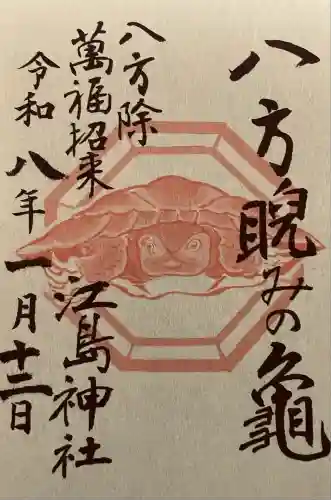 八方睨みの亀
八方除
萬福招来
江島神社
令和八年一月十二日